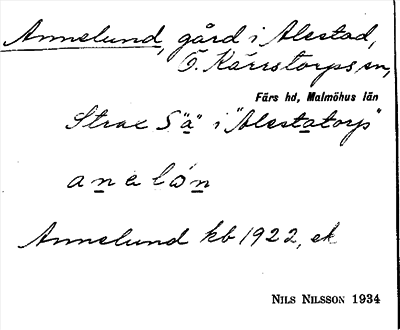 Annelund, gård i Alestad,
Ö. Kärrstorps sn,
Färs hd, Malmöhus län
Strax S "a" i "Alestatorp"
aneløn
Annelund kb 1922, ek
NILS NILSSON 1934